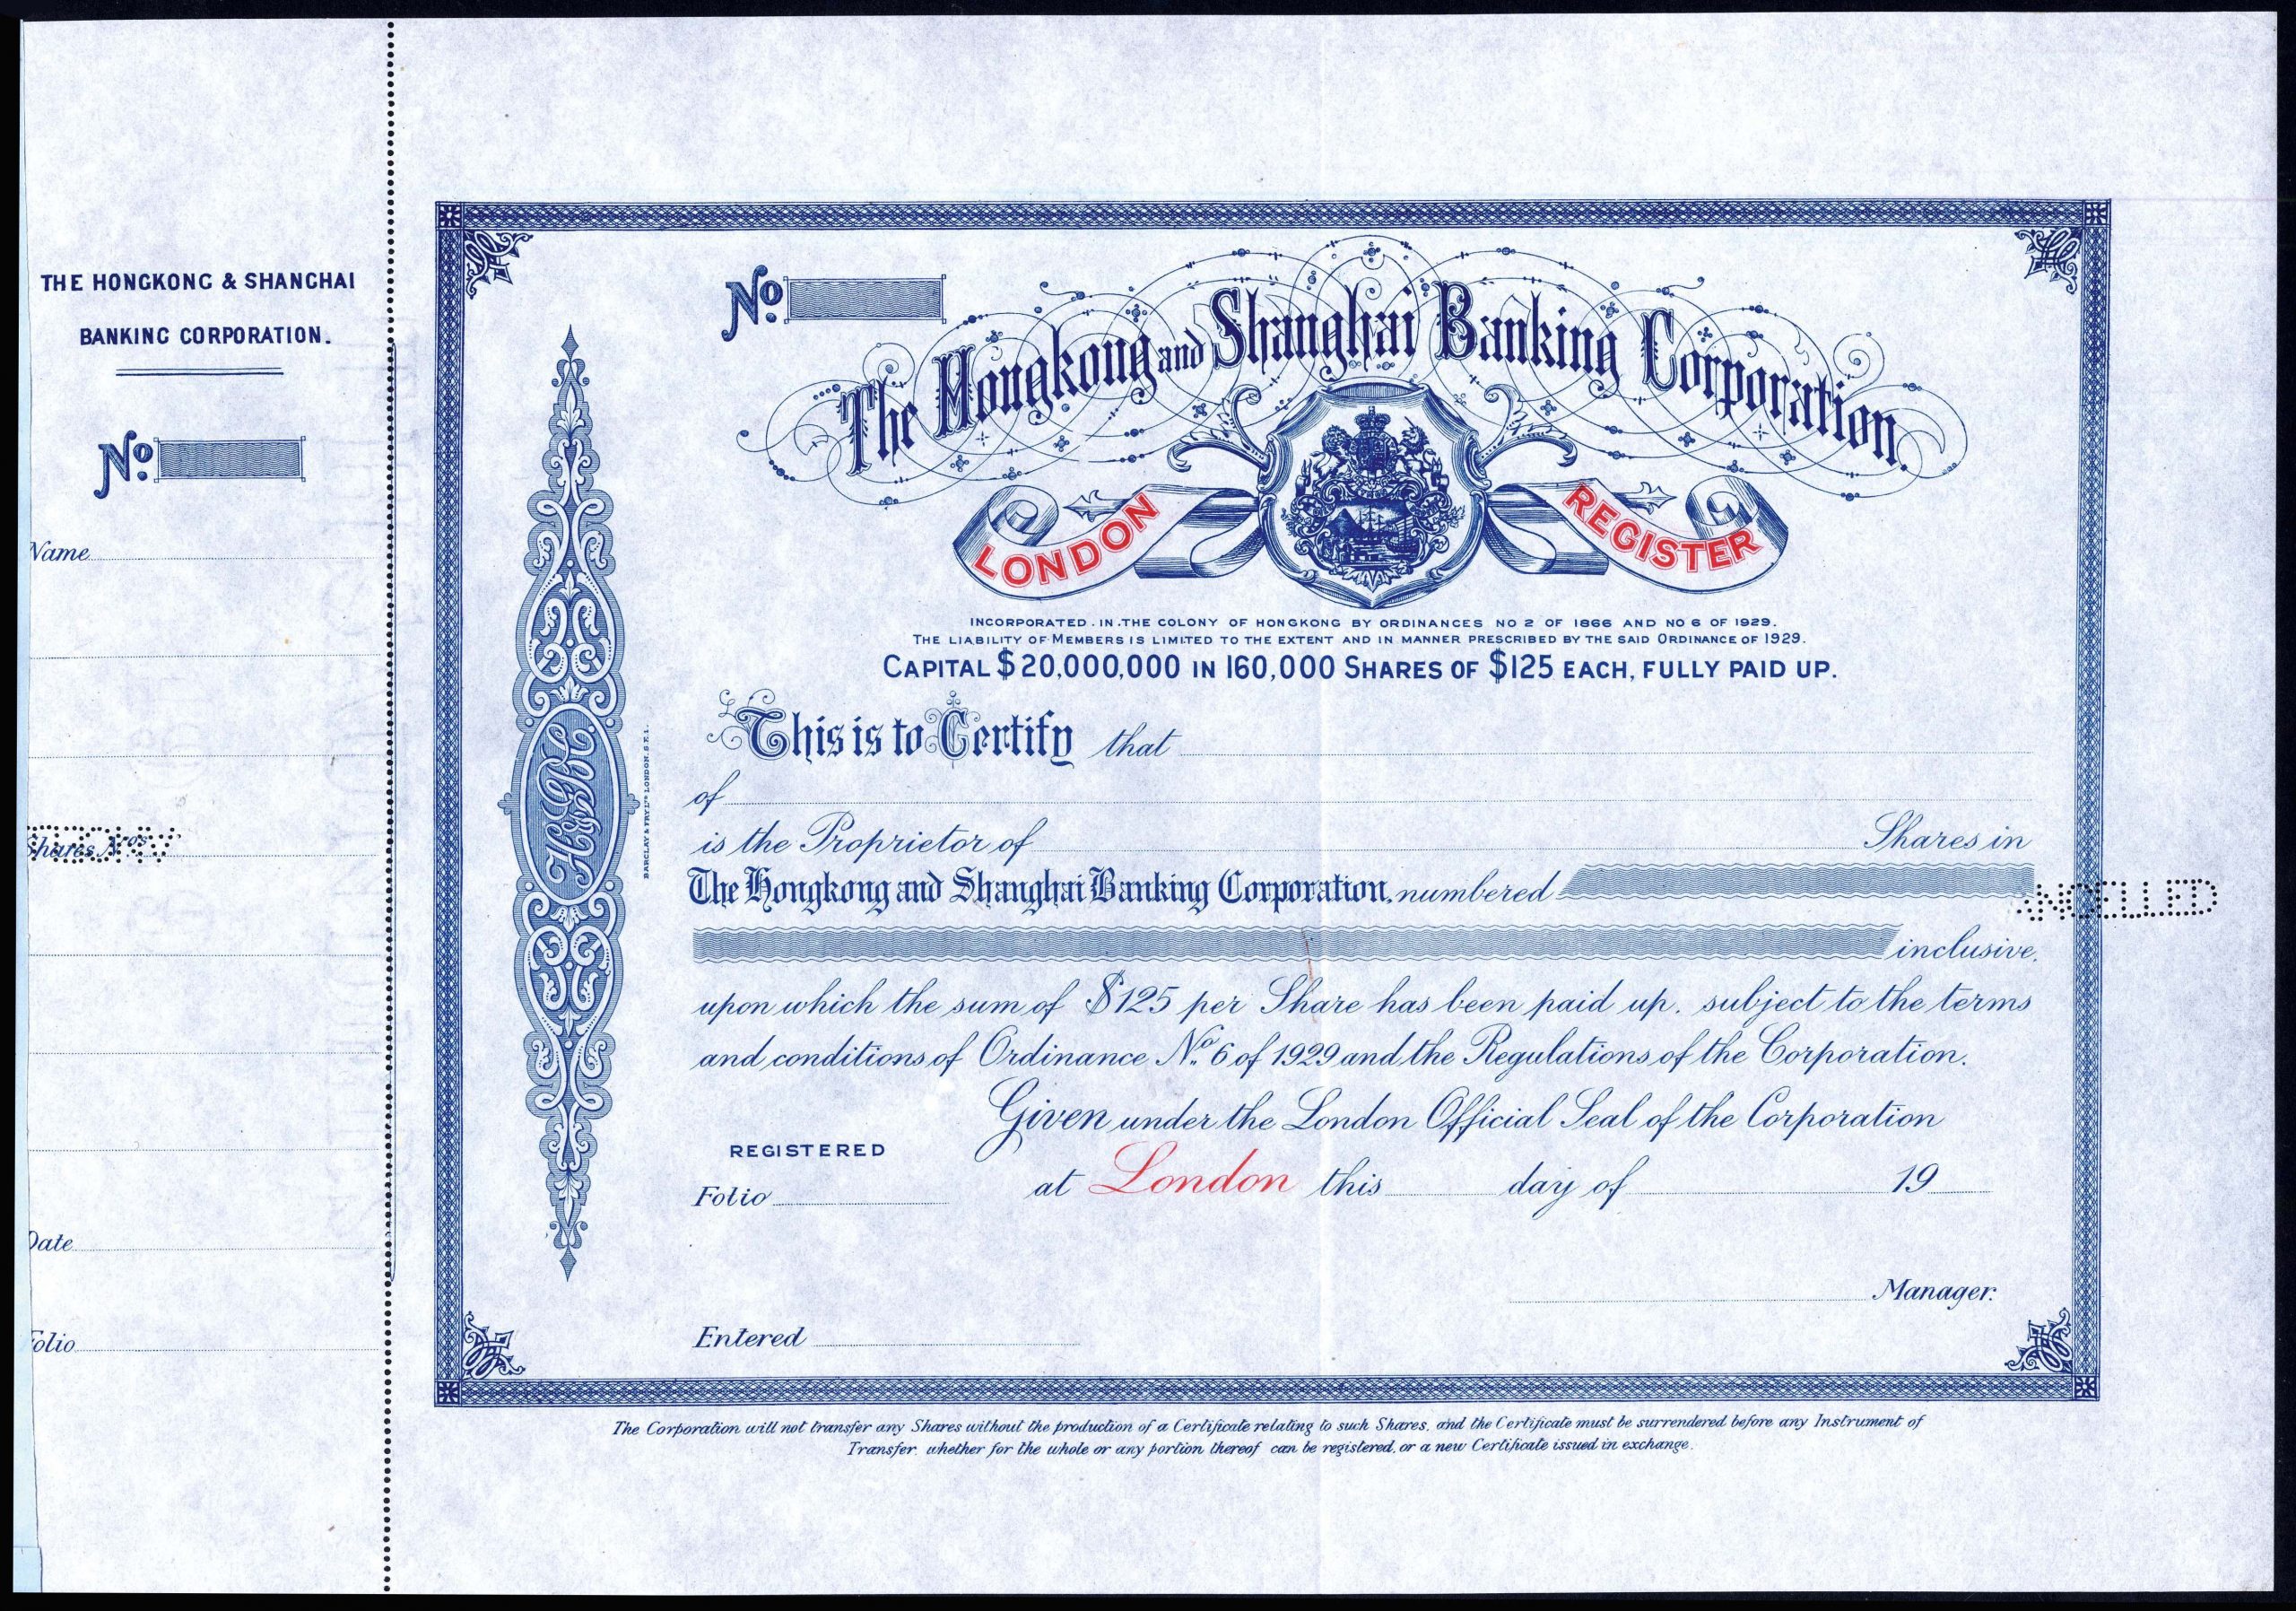 THE HONGKONG & SHANGHAI
BANKING CORPORATION.
No.
Name
Shares Nos
Date
Folio
No.
The Hongkong and Shanghai Banking Corporation.
LONDON REGISTER
INCORPORATED.IN.THE COLONY OF HONGKONG BY ORDINANCES NO 2 OF 1866 AND NO 6 OF 1929.
THE LIABILITY OF MEMBERS IS LIMITED TO THE EXTENT AND IN MANNER PRESCRIBED BY THE SAID ORDINANCE OF 1929.
CAPITAL $20,000,000 IN 160,000 SHARES OF $125 EACH, FULLY PAID UP.
H&SBC
BARCLAY & FRY LTD LONDON. S.E.1.
This is to Certify that
of
is the Proprietor of Shares in
The Hongkong and Shanghai Banking Corporation, numbered
NCELLED
inclusive,
upon which the sum of $125 per Share has been paid up, subject to the terms
and conditions of Ordinance No. 6 of 1929 and the Regulations of the Corporation.
Given under the London Official Seal of the Corporation
REGISTERED
Folio
at London this day of 19
Manager.
Entered
The Corporation will not transfer any Shares without the production of a Certificate relating to such Shares, and the Certificate must be surrendered before any Instrument of
Transfer, whether for the whole or any portion thereof can be registered, or a new Certificate issued in exchange.